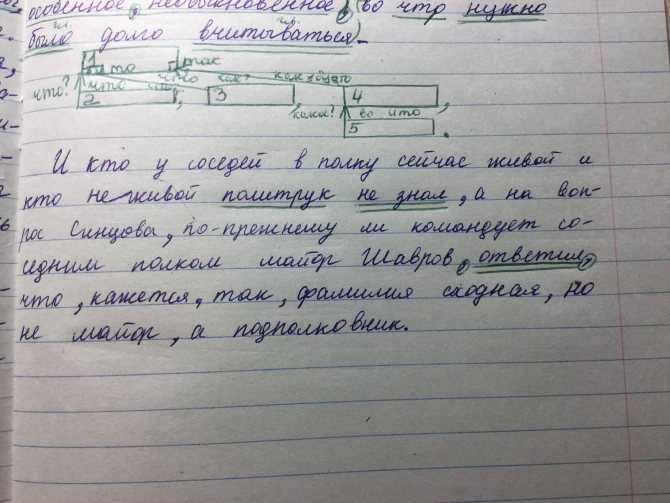 особенное, необыкновенное, во что нужно
было долго вчитываться)
1 что так
что? что что как? как будто
2 , 3 , 4 ,
какое? во что
5 .
И кто у соседей в полку сейчас живой и
кто не живой политрук не знал, а на воп-
рос Синцова, по-прежнему ли командует со-
седним полком майор Шавров, ответил,
что, кажется, так, фамилия сходная, но
не майор, а подполковник.